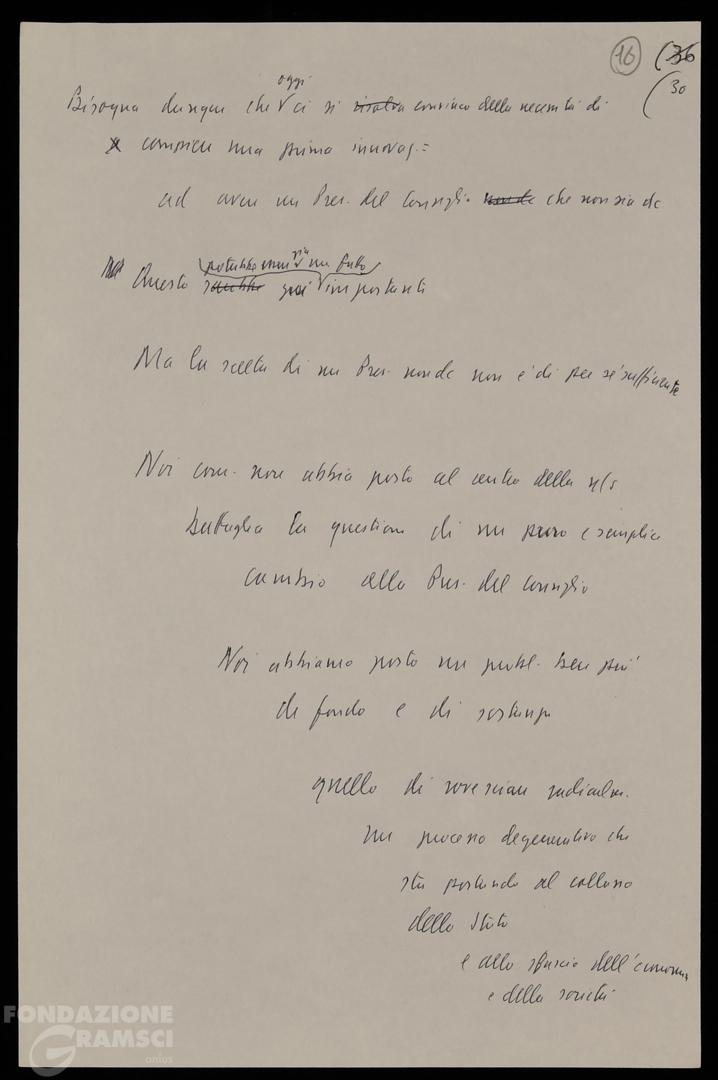 16 (36
(30
oggi
Bisogna dunque che ci si risolva convinca della necessità di
compiere una prima innovaz.=
ad avere un Pres. del Consiglio non dc che non sia dc
potrebbe essere già un fatto
Questo sarebbe importante
Ma la scelta di un Pres. non dc non è di per sé sufficiente
Noi com. non abbia posto al centro della n/s
battaglia la questione di un puro e semplice
cambio alla Pres. del Consiglio
Noi abbiamo posto un probl. ben più
di fondo e di sostanza
quello di rovesciare radicalm.
un processo degenerativo che
sta portando al collasso
dello Stato
e allo sfascio dell'economia
e della società
FONDAZIONE
GRAMSCI
onlus